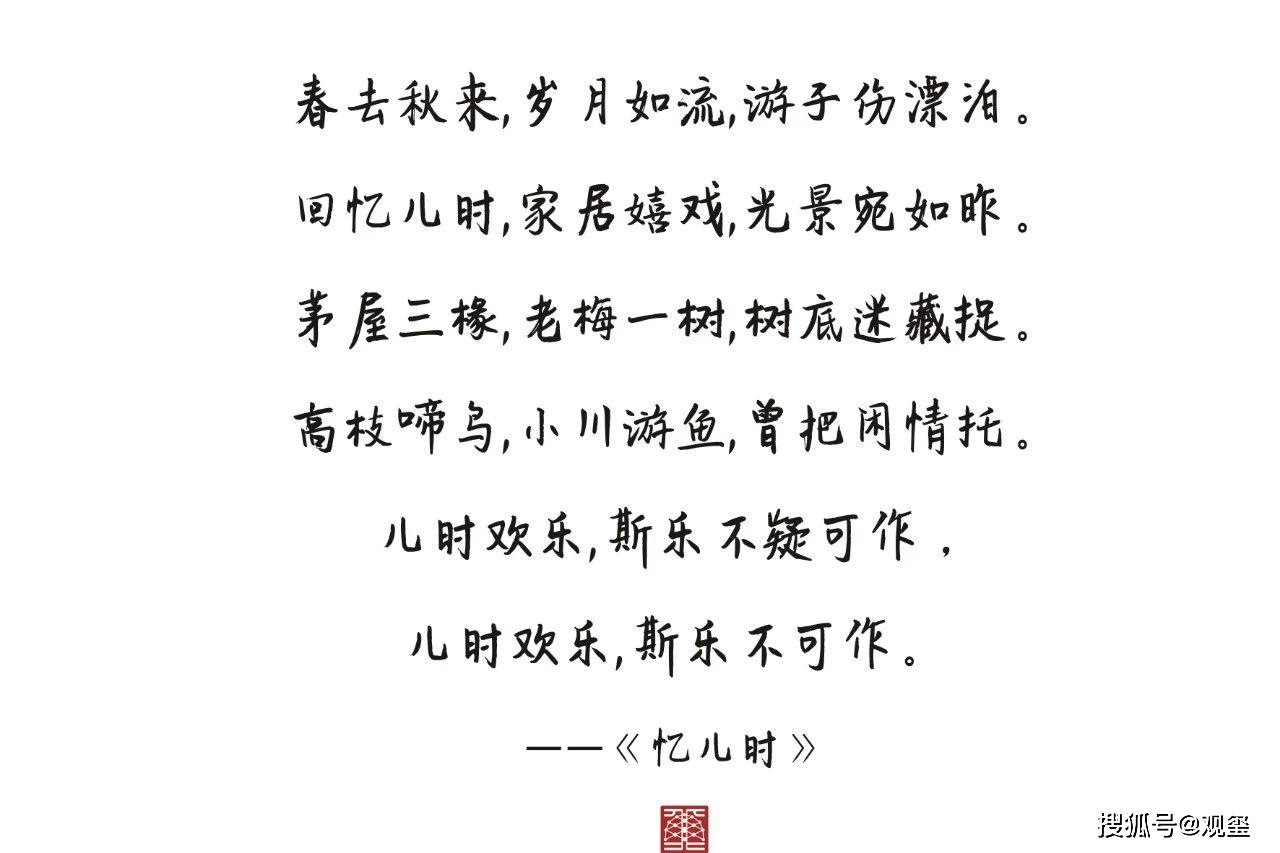 春去秋来,岁月如流,游子伤漂泊。
回忆儿时,家居嬉戏,光景宛如昨。
茅屋三椽,老梅一树,树底迷藏捉。
高枝啼乌,小川游鱼,曾把闲情托。
儿时欢乐,斯乐不疑可作，
儿时欢乐,斯乐不可作。
——《忆儿时》
搜狐号@观玺